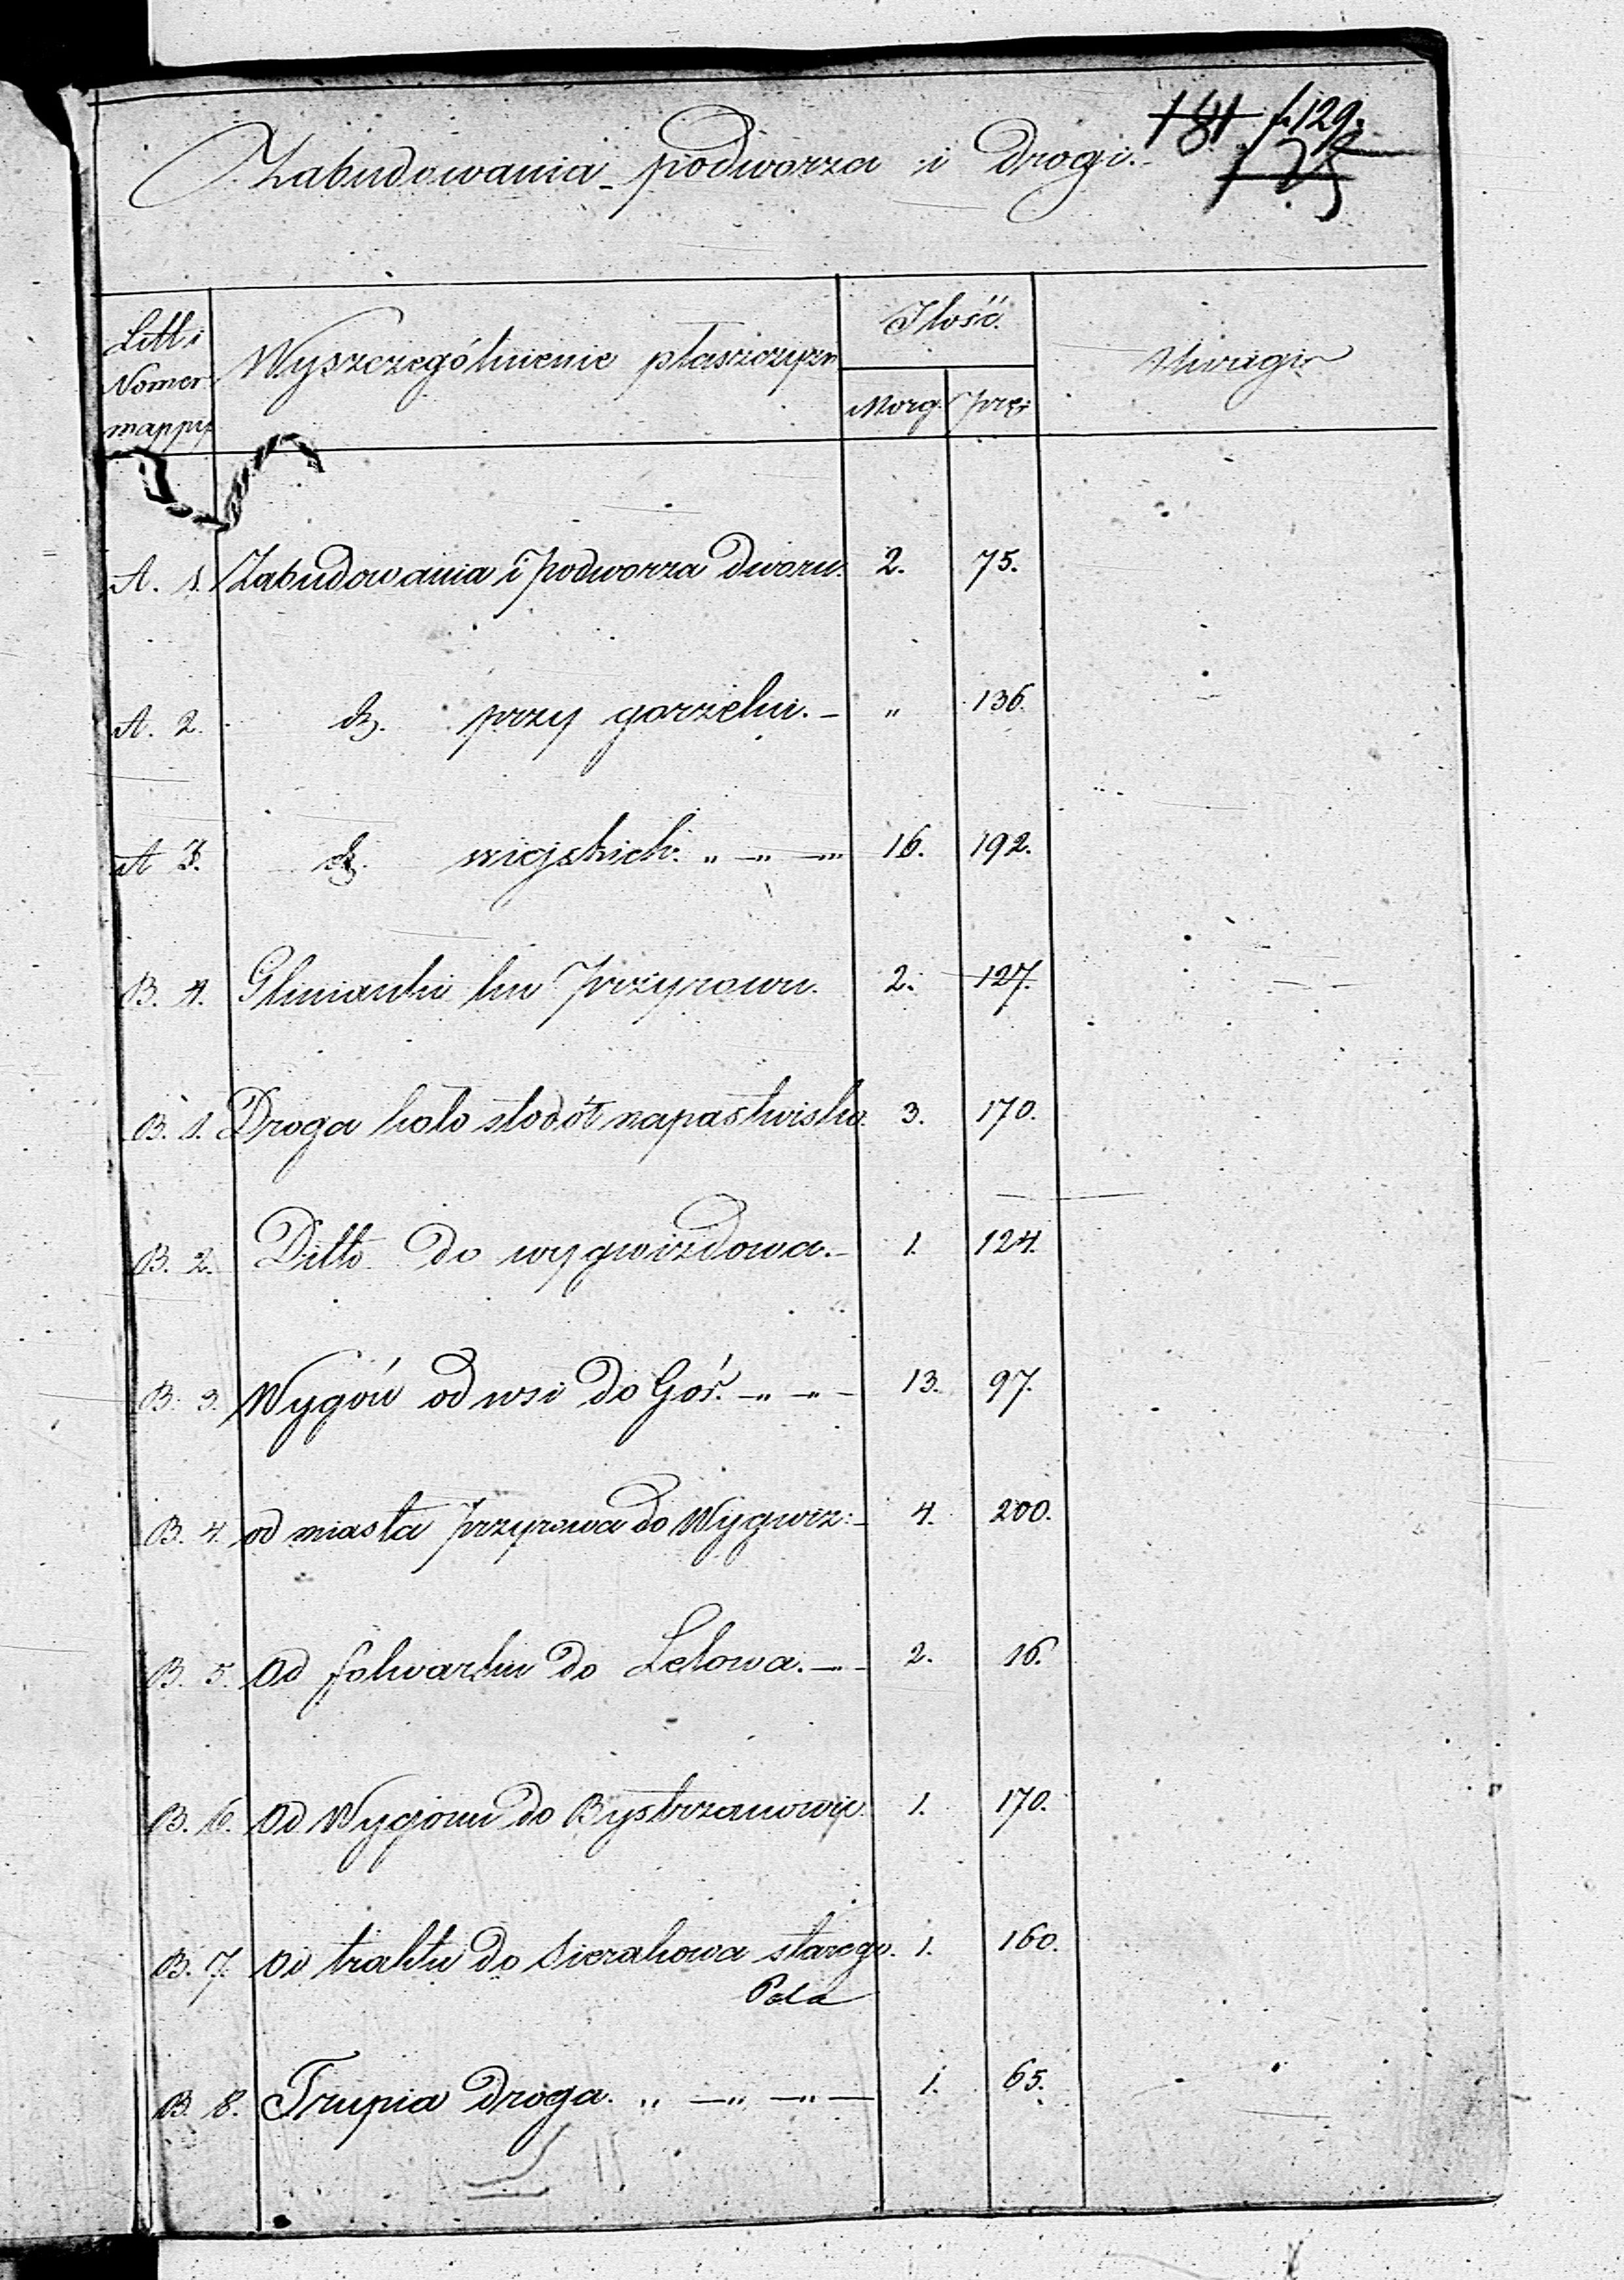 Zabudowania podworza i drogi.
181 f. 129.
125
Litt i Nomer mappy
Wyszczególnienie płaszczyzn
Ilość.
Morg. Pręt
Uwagi
A. 1. Zabudowania i podworza dworu. 2. 75.
A. 2. dt. przy gorzelni. — „ 136.
A 3. dt. wiejskich. „ —„ —„ 16. 192.
B. 4. Glinianki ku Przyrowu. 2. 127.
B. 1. Droga koło stodół na pastwisko. 3. 170.
B. 2. Ditto do wygwizdowa. — 1. 124.
B. 3. Wygón od wsi do Gór. —„ —„ — 13. 97.
B. 4. od miasta Przyrowa do Wygwiz: — 4. 200.
B. 5. Od folwarku do Lelowa. —„— 2. 16.
B. 6. Od Wygonu do Bystrzanowic 1. 170.
B. 7. Od traktu do Sierakowa starego. 1. 160.
Pola
B. 8. Trupia droga. „ —„ —„— 1. 65.